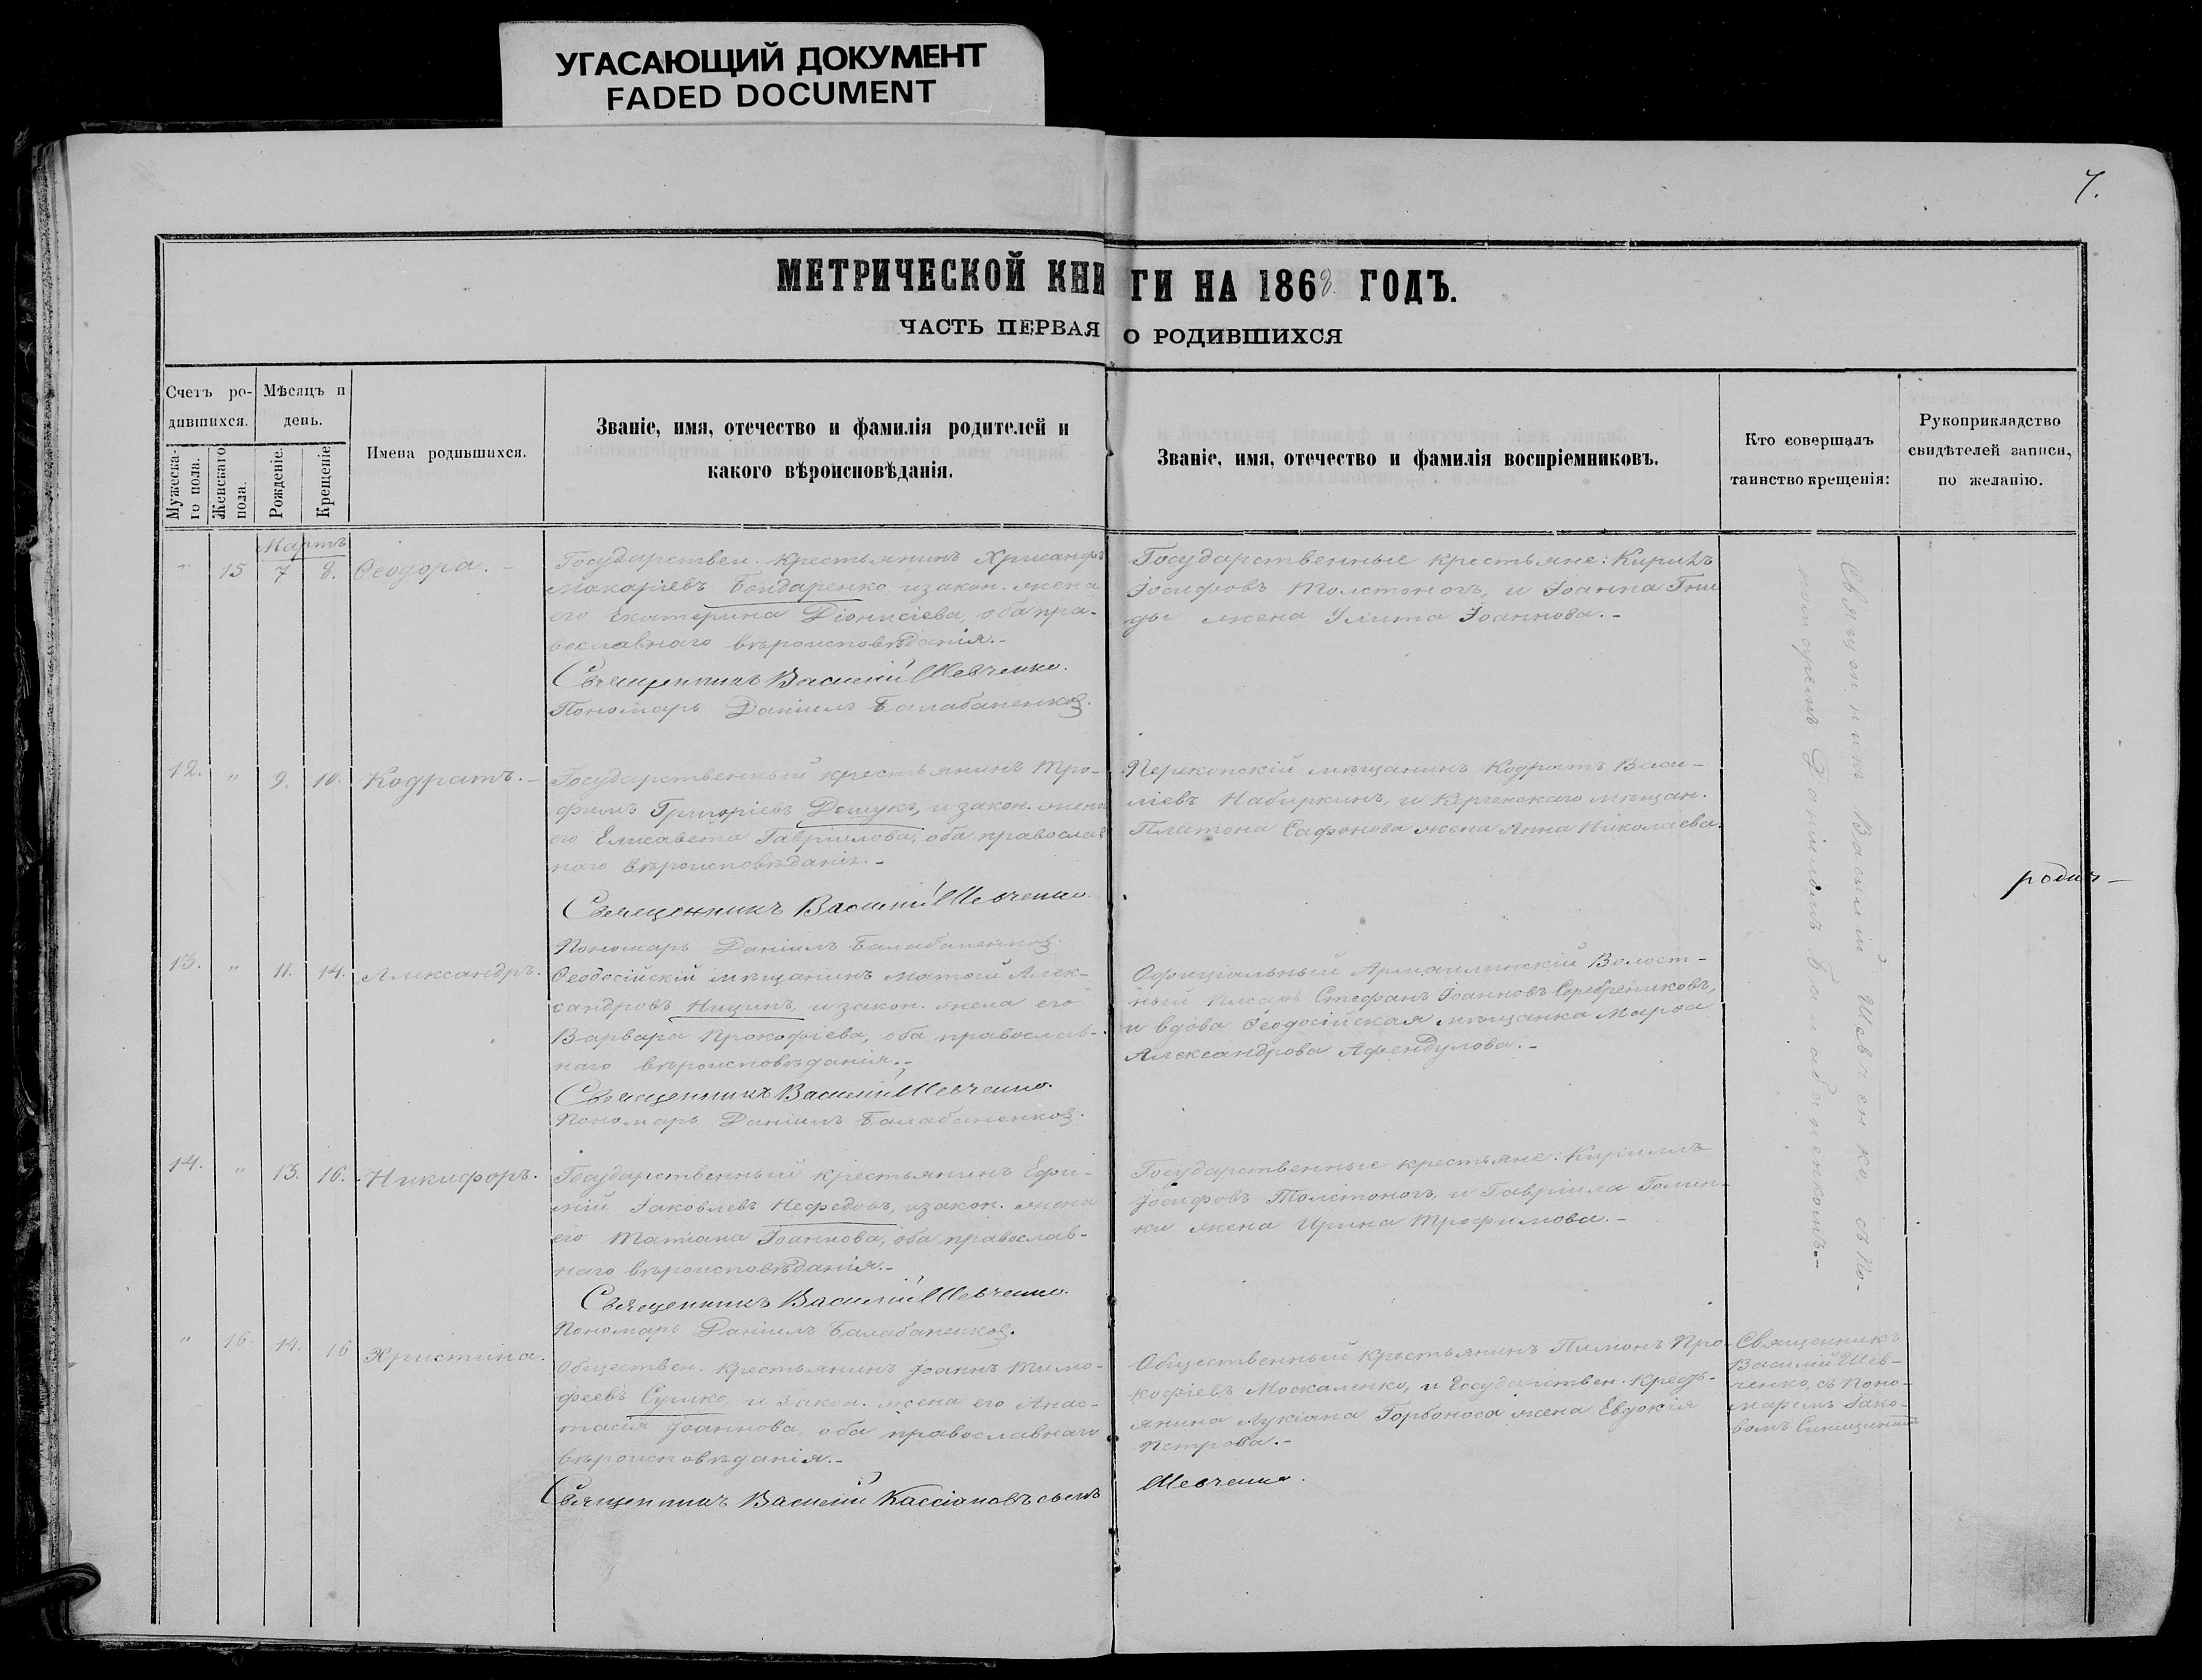 УГАСАЮЩИЙ ДОКУМЕНТ
FADED DOCUMENT
7.
МЕТРИЧЕСКОЙ КНИГИ НА 1868. ГОДЪ.
ЧАСТЬ ПЕРВАЯ О РОДИВШИХСЯ
Счетъ ро-
дившихся.
Мужеска-
го пола.
Женскаго
пола.
Мѣсяцъ и
день.
Рожденіе.
Крещеніе
Имена родившихся.
Званіе, имя, отечество и фамилія родителей и
какого вѣроисповѣданія.
Званіе, имя, отечество и фамилія воспріемниковъ.
Кто совершалъ
таинство крещенія:
Рукоприкладство
свидѣтелей записи,
по желанію.
Мартъ
" 15 7 8. Ѳеодора. -
Государствен. крестьянинъ Хрисанфъ
Макаріевъ Бондаренко, и закон. жена
его Екатерина Діонисіева, оба пра-
вославнаго вѣроисповѣданія.-
Священникъ Василій Шевченко.
Пономарь Даніилъ Балабаненков.
Государственные крестьяне: Кирилъ
Іосифовъ Толстоногъ, и Іоанна Гни
ды жена Улита Іоаннова.-
Священникъ Василій Шевченко, съ По-
номаремъ Даніиломъ Балабаненковымъ.-
12. " 9. 10. Кодратъ. -
Государственный крестьянинъ Тро-
фимъ Григоріевъ Демукъ, и закон. жена
его Елисавета Гавріилова, оба православ
наго вѣроисповѣданія.-
Священникъ Василій Шевченко.
Пономарь Даніилъ Балабаненков.
Перекопскій мѣщанинъ Кодратъ Васи-
ліевъ Набиркинъ, и Керченскаго мѣщан.
Платона Сафонова жена Анна Николаева.
13. " 11. 14. Александръ.
Ѳеодосійскій мѣщанинъ Матѳей Алек-
сандровъ Ницинъ, и закон. жена его
Варвара Прокофіева, оба православ-
наго вѣроисповѣданія.-
Священникъ Василій Шевченко.
Пономарь Даніилъ Балабаненков.
Волост-
ный Писарь Стефанъ Іоанновъ Серебрениковъ,
и вдова Ѳеодосійская мѣщанка Марѳа
Александрова Афендулова.-
14. " 13. 16. Никифоръ.
Государственный крестьянинъ Ефи-
мій Іаковлевъ Нефедовъ, и закон. жена
его Татіана Іоаннова, оба православ-
наго вѣроисповѣданія.-
Священникъ Василій Шевченко.
Пономарь Даніилъ Балабаненков.
Государственные крестьяне: Кириллъ
Іосифовъ Толстоногъ, и Гавріила Голин-
ки жена Ирина Трофимова.-
" 16. 14. 16 Христина.
Обществен. крестьянинъ Іоаннъ Тимо-
феевъ Сушко, и закон. жена его Анас-
тасія Іоаннова, оба православнаго
вѣроисповѣданія.-
Общественный крестьянинъ Пимонъ Про
кофіевъ Москаленко, и Государствен. кресть-
янина Лукіана Горбоноса жена Евдокія
Петрова.-
Священникъ
Василій Шев-
ченко, съ Поно-
маремъ Іако-
вомъ
Священникъ Василій Кассіановъ сынъ Шевченко.